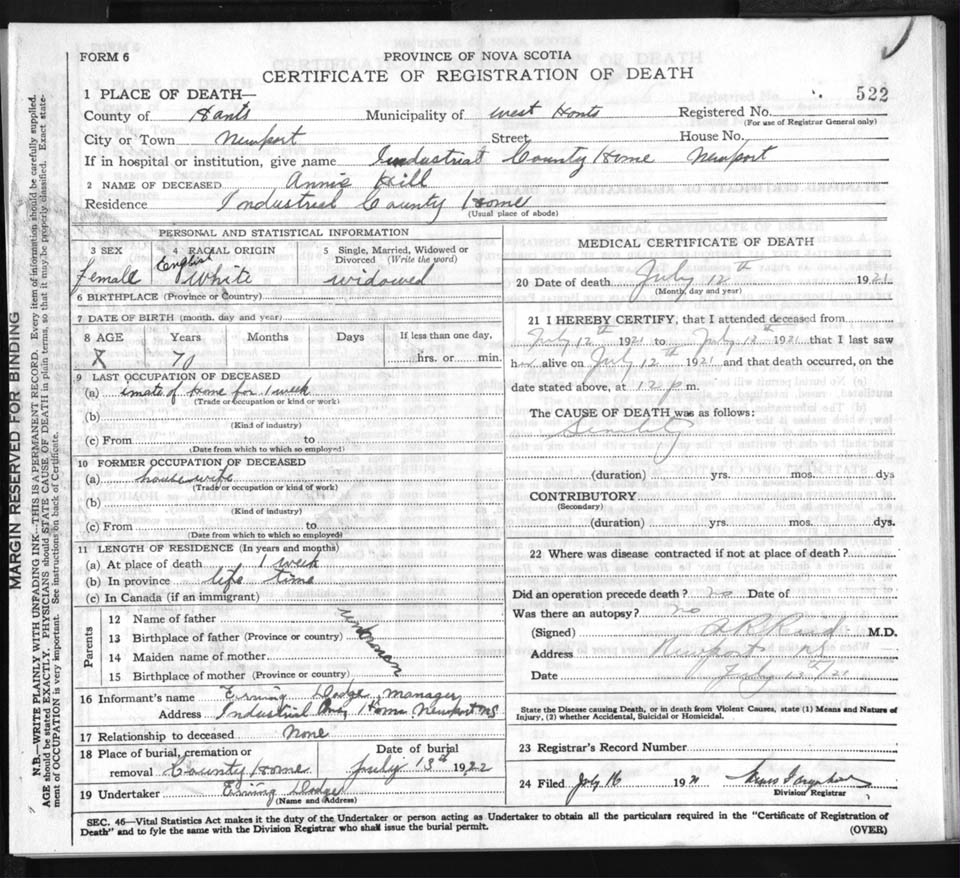 FORM 6
PROVINCE OF NOVA SCOTIA
CERTIFICATE OF REGISTRATION OF DEATH
522
1 PLACE OF DEATH—
County of Hants Municipality of West Hants Registered No.
(For use of Registrar General only)
City or Town Newport Street House No.
If in hospital or institution, give name Industrial County Home Newport
2 NAME OF DECEASED Annie Hill
Residence Industrial County Home
(Usual place of abode)
PERSONAL AND STATISTICAL INFORMATION
3 SEX 4 RACIAL ORIGIN 5 Single, Married, Widowed or Divorced (Write the word)
female English White widowed
6 BIRTHPLACE (Province or Country)
7 DATE OF BIRTH (month, day and year)
8 AGE Years Months Days If less than one day,
X 70 hrs. or min.
9 LAST OCCUPATION OF DECEASED
(a) inmate of Home for 1 week
(Trade or occupation or kind or work)
(b)
(Kind of industry)
(c) From to
(Date from which to which so employed)
10 FORMER OCCUPATION OF DECEASED
(a) housewife
(Trade or occupation or kind of work)
(b)
(Kind of industry)
(c) From to
(Date from which to which so employed)
11 LENGTH OF RESIDENCE (In years and months)
(a) At place of death 1 week
(b) In province life time
(c) In Canada (if an immigrant)
Parents
12 Name of father
13 Birthplace of father (Province or country)
14 Maiden name of mother
15 Birthplace of mother (Province or country)
16 Informant's name Dodge manager
Address Industrial Home Newport NS
17 Relationship to deceased None
18 Place of burial, cremation or removal County Home
Date of burial July 13th 1922
19 Undertaker Dodge
(Name and Address)
MEDICAL CERTIFICATE OF DEATH
20 Date of death July 12th 1921
(Month, day and year)
21 I HEREBY CERTIFY, that I attended deceased from
July 12th 1921 to July 12th 1921 that I last saw
her alive on July 12th 1921 and that death occurred, on the
date stated above, at 12 p m.
The CAUSE OF DEATH was as follows:
Senility
(duration) yrs. mos. dys
CONTRIBUTORY
(Secondary)
(duration) yrs. mos. dys.
22 Where was disease contracted if not at place of death?
Did an operation precede death? no Date of
Was there an autopsy? no
(Signed) Reid M.D.
Address Newport NS
Date July 13th/21
State the Disease causing Death, or in death from Violent Causes, state (1) Means and Nature of
Injury, (2) whether Accidental, Suicidal or Homicidal.
23 Registrar's Record Number
24 Filed July 16 19
Division Registrar
SEC. 46—Vital Statistics Act makes it the duty of the Undertaker or person acting as Undertaker to obtain all the particulars required in the "Certificate of Registration of
Death" and to fyle the same with the Division Registrar who shall issue the burial permit.
(OVER)
MARGIN RESERVED FOR BINDING
N.B.—WRITE PLAINLY WITH UNFADING INK—THIS IS A PERMANENT RECORD. Every item of information should be carefully supplied.
AGE should be stated EXACTLY. PHYSICIANS should STATE CAUSE OF DEATH in plain terms, so that it may be properly classified. Exact state-
ment of OCCUPATION is very important. See instructions on back of Certificate.